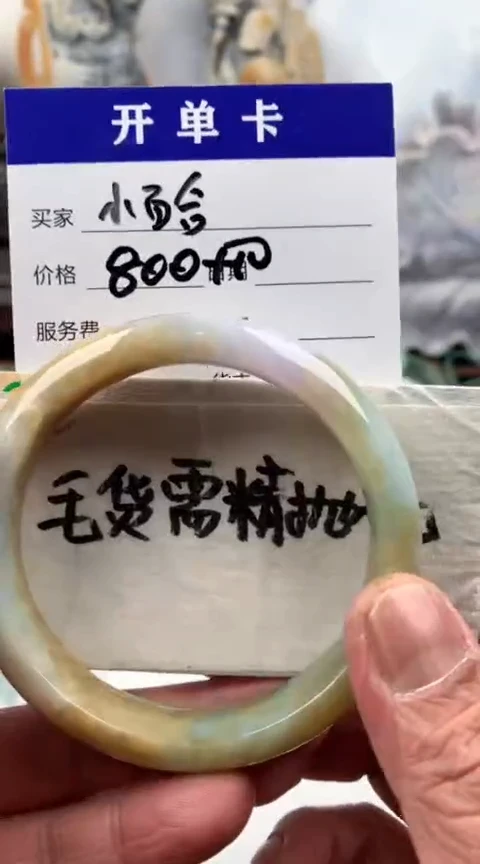 开单卡
买家 小百合
价格 800
服务费
毛货需精抛